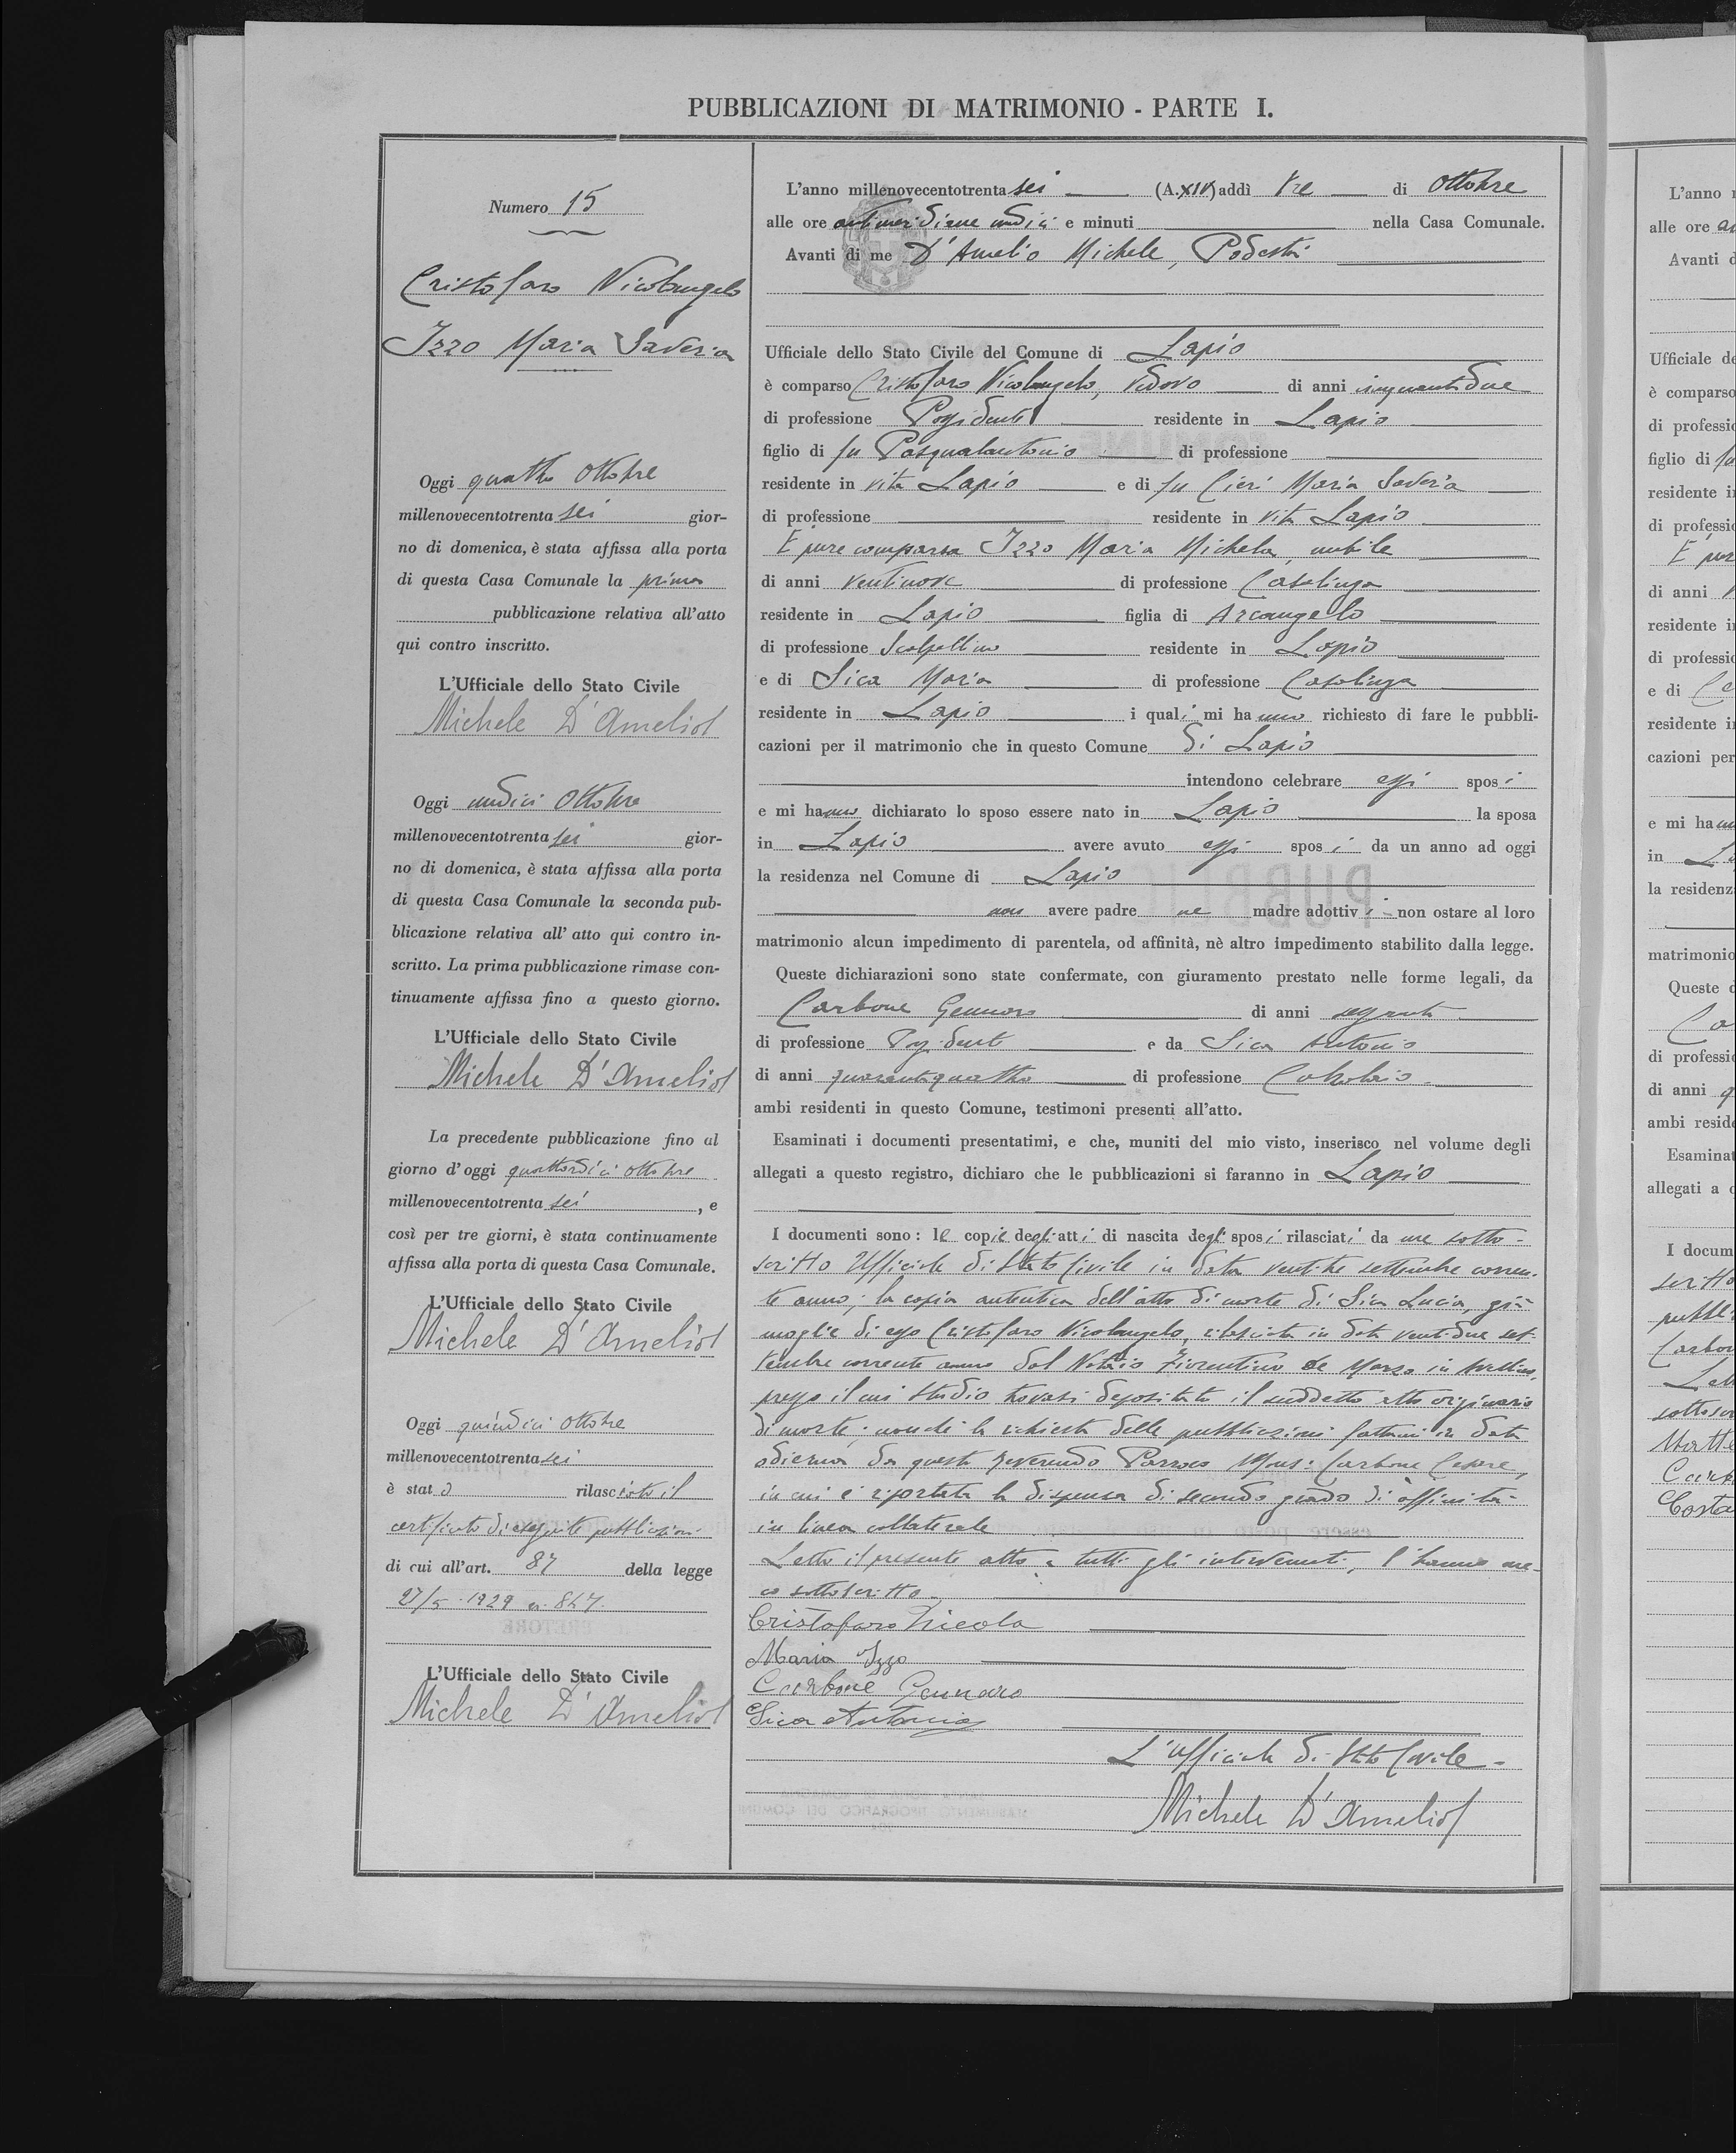 PUBBLICAZIONI DI MATRIMONIO - PARTE I.
Numero 15
Cristofaro Nicolangelo
Izzo Maria Saveria
Oggi quattro Ottobre
millenovecentotrenta sei gior-
no di domenica, è stata affissa alla porta
di questa Casa Comunale la prima
pubblicazione relativa all'atto
qui contro inscritto.
L'Ufficiale dello Stato Civile
Michele D'Amelio
Oggi undici Ottobre
millenovecentotrenta sei gior-
no di domenica, è stata affissa alla porta
di questa Casa Comunale la seconda pub-
blicazione relativa all' atto qui contro in-
scritto. La prima pubblicazione rimase con-
tinuamente affissa fino a questo giorno.
L'Ufficiale dello Stato Civile
Michele D'Amelio
La precedente pubblicazione fino al
giorno d'oggi quattordici ottobre
millenovecentotrenta sei , e
così per tre giorni, è stata continuamente
affissa alla porta di questa Casa Comunale.
L'Ufficiale dello Stato Civile
Michele D'Amelio
Oggi quindici Ottobre
millenovecentotrenta sei
è stato rilasciato il
certificato di eseguite pubblicazioni
di cui all'art. 87 della legge
27/5-1929 n. 847.
L'Ufficiale dello Stato Civile
Michele D'Amelio
L'anno millenovecentotrenta sei (A. XIV) addì tre di Ottobre
alle ore antimeridiane undici e minuti nella Casa Comunale.
Avanti di me D'Amelio Michele, Podestà
Ufficiale dello Stato Civile del Comune di Lapio
è comparso Cristofaro Nicolangelo, vedovo di anni cinquantadue
di professione Possidente residente in Lapio
figlio di fu Pasqualantonio di professione
residente in vita Lapio e di fu Cieri Maria Saveria
di professione residente in vita Lapio
È pure comparsa Izzo Maria Michela, nubile
di anni ventinove di professione Casalinga
residente in Lapio figlia di Arcangelo
di professione Scalpellino residente in Lapio
e di Sica Maria di professione Casalinga
residente in Lapio i quali mi hanno richiesto di fare le pubbli-
cazioni per il matrimonio che in questo Comune di Lapio
intendono celebrare essi sposi
e mi hanno dichiarato lo sposo essere nato in Lapio la sposa
in Lapio avere avuto essi sposi da un anno ad oggi
la residenza nel Comune di Lapio
non avere padre ne madre adottivi - non ostare al loro
matrimonio alcun impedimento di parentela, od affinità, nè altro impedimento stabilito dalla legge.
Queste dichiarazioni sono state confermate, con giuramento prestato nelle forme legali, da
Carbone Gennaro di anni sessanta
di professione Possidente e da Sica Antonio
di anni quarantaquattro di professione Calzolaio
ambi residenti in questo Comune, testimoni presenti all'atto.
Esaminati i documenti presentatimi, e che, muniti del mio visto, inserisco nel volume degli
allegati a questo registro, dichiaro che le pubblicazioni si faranno in Lapio
I documenti sono: le copie degli atti di nascita degli sposi rilasciati da me sotto-
scritto Ufficiale di Stato Civile in data ventitre settembre corren-
te anno; la copia autentica dell'atto di morte di Sica Lucia, già
moglie di esso Cristofaro Nicolangelo, rilasciata in data ventidue set-
tembre corrente anno dal Notaio Fiorentino de Marzo in Avellino,
presso il cui studio trovasi depositato il suddetto atto originario
di morte; nonché la richiesta delle pubblicazioni fattami in data
odierna da questo reverendo Parroco Mons: Carbone Cesare,
in cui è riportata la dispensa di secondo grado di affinità
in linea collaterale
Letto il presente atto a tutti gli intervenuti, l'hanno me-
co sottoscritto.
Cristofaro Nicola
Maria Izzo
Carbone Gennaro
Sica Antonio
L'Ufficiale di Stato Civile -
Michele D'Amelio
L'anno
alle ore
Avanti
Ufficiale
è comparso
di
figlio di
residente
di
È pure
di anni
residente
di
e di
residente
cazioni per
e mi ha
in
la
matrimonio
Queste
di
di anni
ambi
allegati a
I